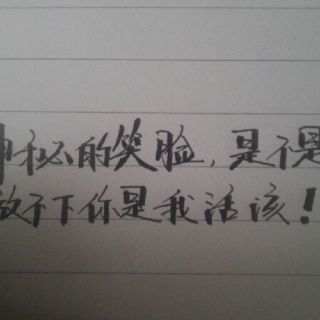 神秘的笑脸，是不是
放不下你是我活该！